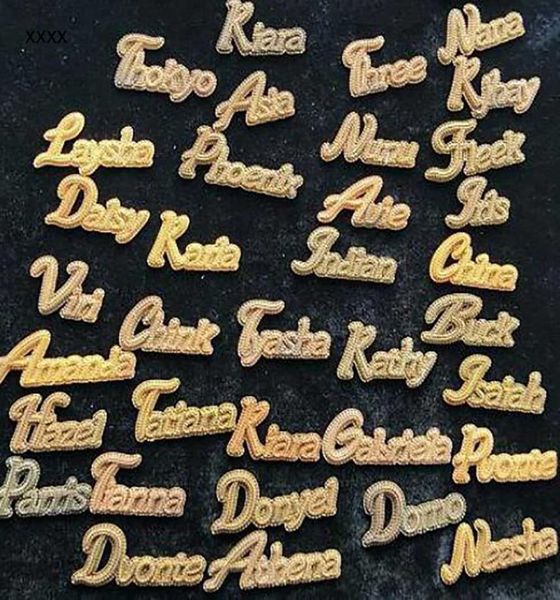 xxxx
Kiara
Nana
Thokyo
Three
Kihay
Asia
Laysha
Phoenix
Nunu
Fleek
Daisy
Karia
Avie
Iris
Indian
China
Viri
Chink
Tasha
Kathy
Buck
Amanda
Isaiah
Hazel
Tatiana
Kiara
Gabriela
Pvonte
Parris
Tianna
Donyel
Domo
Dvonte
Athena
Neasha